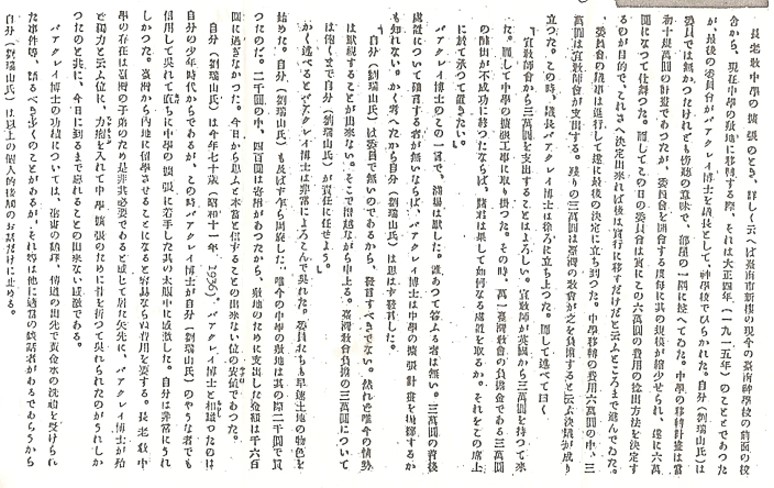 長老教中學の擴張のとき、詳しく云へば臺南市新樓の現今の臺南神學校の前面の校
舍から、現在中學の敷地に移轉する際、それは大正四年（一九一五年）のことであつた
が、最後の委員會がバアクレイ博士を議長として、神學校でひらかれた。自分（劉瑞山氏）は
委員では無かつたけれども傍聽の意味で、部屋の一隅に控へてゐた。中學の移轉計畫は當
初十幾萬圓の計畫であつたが、委員會を開會する度毎に其の規模が縮少せられ、遂に六萬
圓になつて仕舞つた。而してこの日の委員會は實にこの六萬圓の費用の捻出方法を決定す
るのが目的で、これさへ決定出來れば後は實行に移すだけだと云ふところまで進んでゐた。
委員會の議事は進行して遂に最後の決定に立ち到つた。中學移轉の費用六萬圓の中、三
萬圓は宣教師會が支出する。殘りの三萬圓は臺灣の教會が之を負擔すると云ふ決議が成り
立つた。この時、議長バアクレイ博士は徐ろに立ち上つた。而して述べて曰く
「宣教師會から三萬圓を支出することはよろしい。宣教師が英國から三萬圓を持つて來
た。而して中學の擴張工事に取り掛つた。その時、萬一臺灣教會の負擔金である三萬圓
の醵出が不成功に終つたならば、諸君は果して如何なる處置を取るか。それをこの席上
に於て承つて置きたい。」
バアクレイ博士のこの一言で、滿場は默した。誰あつて答ふる者は無い。三萬圓の善後
處置について確言する者が無いならば、バアクレイ博士は中學の擴張計畫を抛擲するか
も知れない。かく考へたから自分（劉瑞山氏）は思はず發言した。
「自分（劉瑞山氏）は委員で無いのであるから、發言すべきでない。然れど唯今の情勢
は默視することが出來ない。そこで僭越ながら申上る。臺灣教會負擔の三萬圓について
は飽くまで自分（劉瑞山氏）が責任に任せよう。」
かく述べるとバアクレイ博士は非常によろこんで呉れた。委員たちも早速土地の物色を
始めた。自分（劉瑞山氏）も及ばず乍ら周旋した。唯今の中學の敷地は其の際二千圓で買
つたのだ。二千圓の中、四百圓は寄附があつたから、敷地のために支出した金額は千六百
圓に過ぎなかつた。今日から思ふと本當と信ずることの出來ない位の安値であつた。
自分（劉瑞山氏）は今年七十歳（昭和十一年 1936）。バアクレイ博士と相識つたのは
自分の少年時代からであるが、この時バアクレイ博士が自分（劉瑞山氏）のやうな者でも
信用して呉れて直ちに中學の擴張に若手した其の太腹中に感激した。自分は非常にうれ
しかつた。臺灣から内地に留學させることになると容易ならぬ費用を要する。長老教中
學の存在は臺灣の子弟のため是非共必要であると感じて居た矢先に、バアクレイ博士が殆
ど獨力と云ふ位に、力瘤を入れて中學擴張のために骨を折つて呉れられたのがうれしか
つたのと共に、今日に到るまで忘れることの出來ない感激である。
バアクレイ博士の功績については、聖書の飜譯、傳道の出先で黄金水の洗禮を受けられ
た事件等、語るべき多くのことがあるが、それ等は他に適當の談話者があるであらうから
自分（劉瑞山氏）は以上の個人的接觸のお話だけに止める。